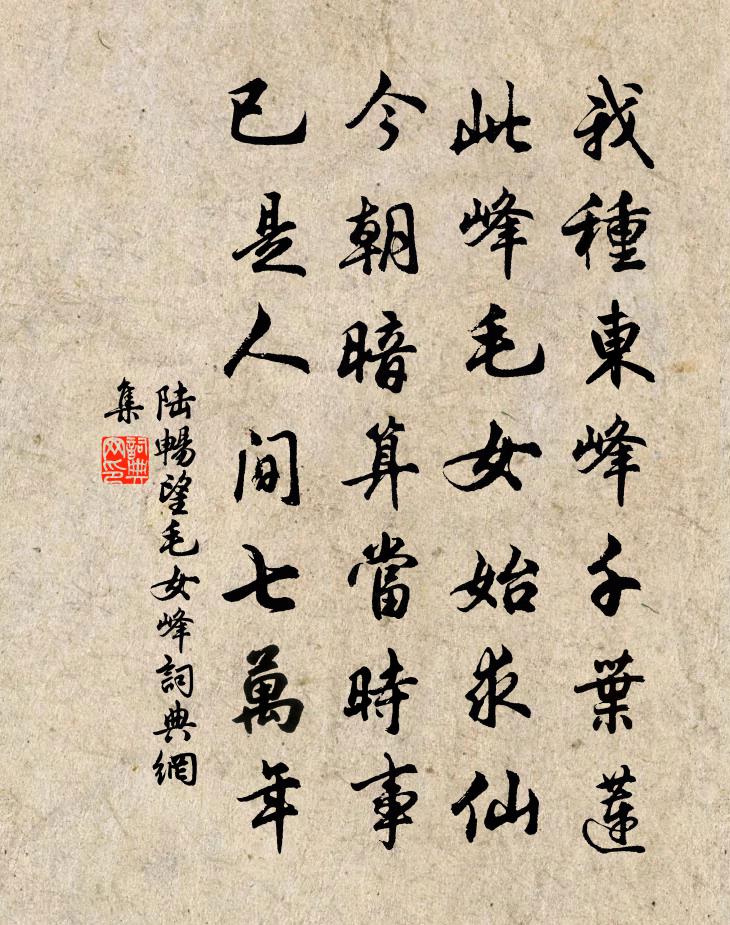 我種東峰千葉蓮
此峰毛女始求仙
今朝暗算當時事
已是人間七萬年
陆暢望毛女峰詞典網
集
詞典
网印